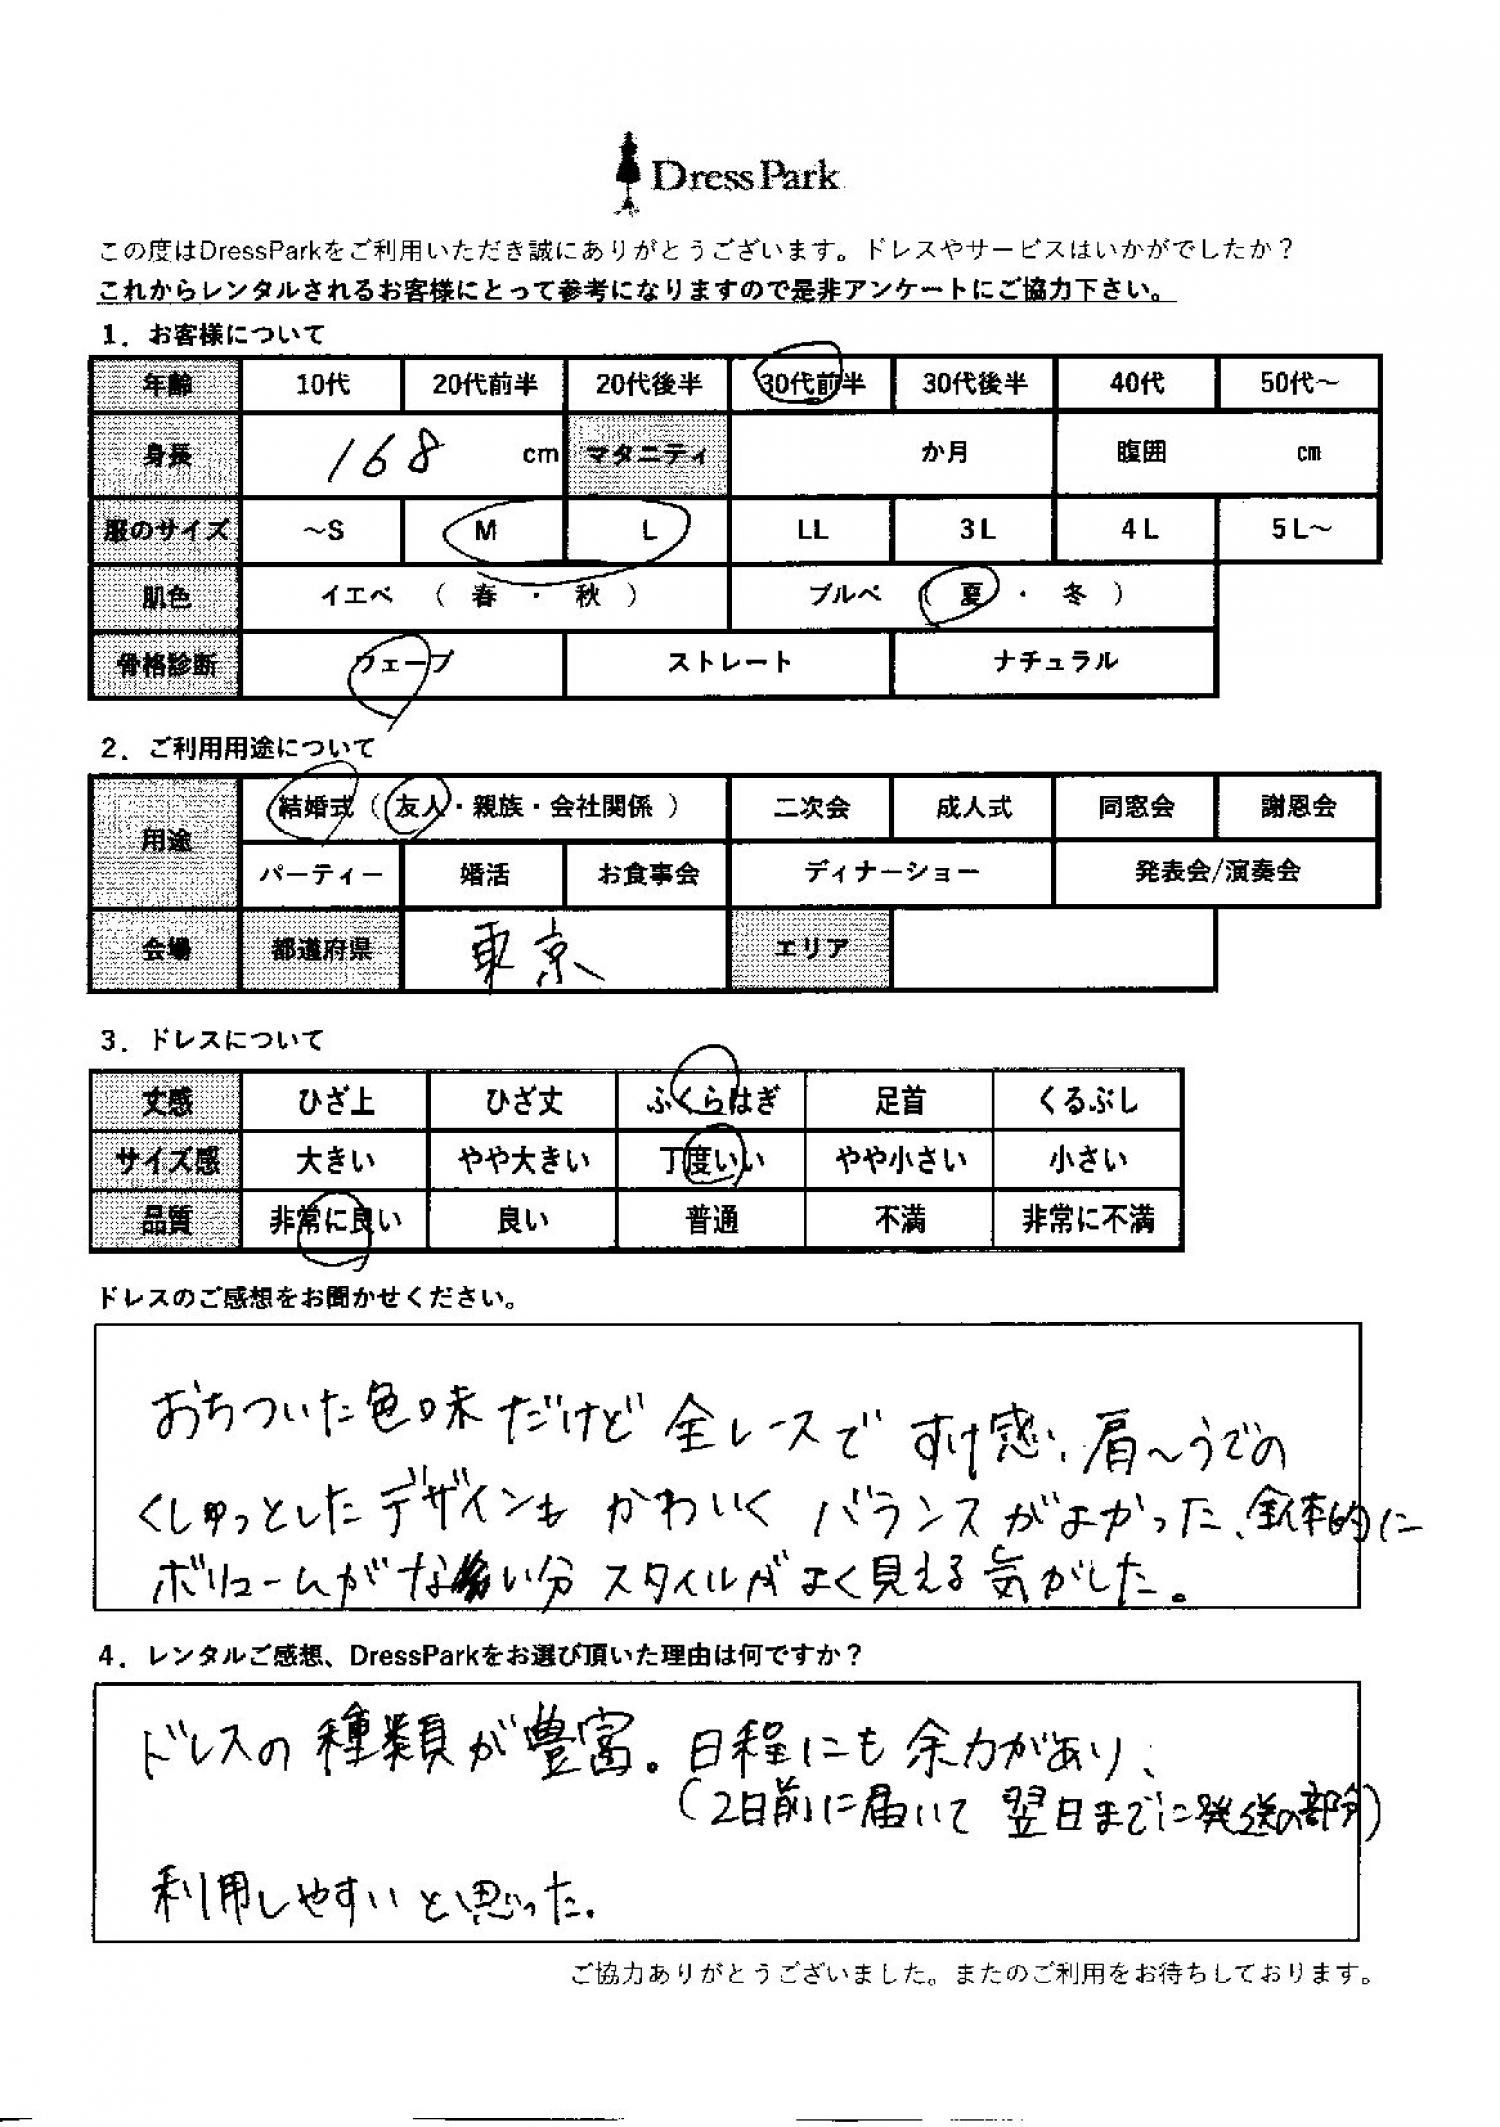 DressPark
この度はDressParkをご利用いただき誠にありがとうございます。ドレスやサービスはいかがでしたか？
これからレンタルされるお客様にとって参考になりますので是非アンケートにご協力下さい。
1．お客様について
年齢 10代 20代前半 20代後半 30代前半 30代後半 40代 50代～
身長 168 cm マタニティ か月 腹囲 cm
服のサイズ ～S M L LL 3L 4L 5L～
肌色 イエベ （ 春 ・ 秋 ） ブルベ （ 夏 ・ 冬 ）
骨格診断 ウェーブ ストレート ナチュラル
2．ご利用用途について
用途 結婚式（ 友人・親族・会社関係 ） 二次会 成人式 同窓会 謝恩会
パーティー 婚活 お食事会 ディナーショー 発表会/演奏会
会場 都道府県 東京 エリア
3．ドレスについて
丈感 ひざ上 ひざ丈 ふくらはぎ 足首 くるぶし
サイズ感 大きい やや大きい 丁度いい やや小さい 小さい
品質 非常に良い 良い 普通 不満 非常に不満
ドレスのご感想をお聞かせください。
おちついた色味だけど 全レースで すけ感、肩～うでの
くしゅっとしたデザインも かわいく バランスがよかった、全体的に
ボリュームがない分 スタイルがよく見える気がした。
4．レンタルご感想、DressParkをお選び頂いた理由は何ですか？
ドレスの種類が豊富。日程にも余力があり、
（2日前に届いて 翌日までに発送の部分）
利用しやすいと思った。
ご協力ありがとうございました。またのご利用をお待ちしております。